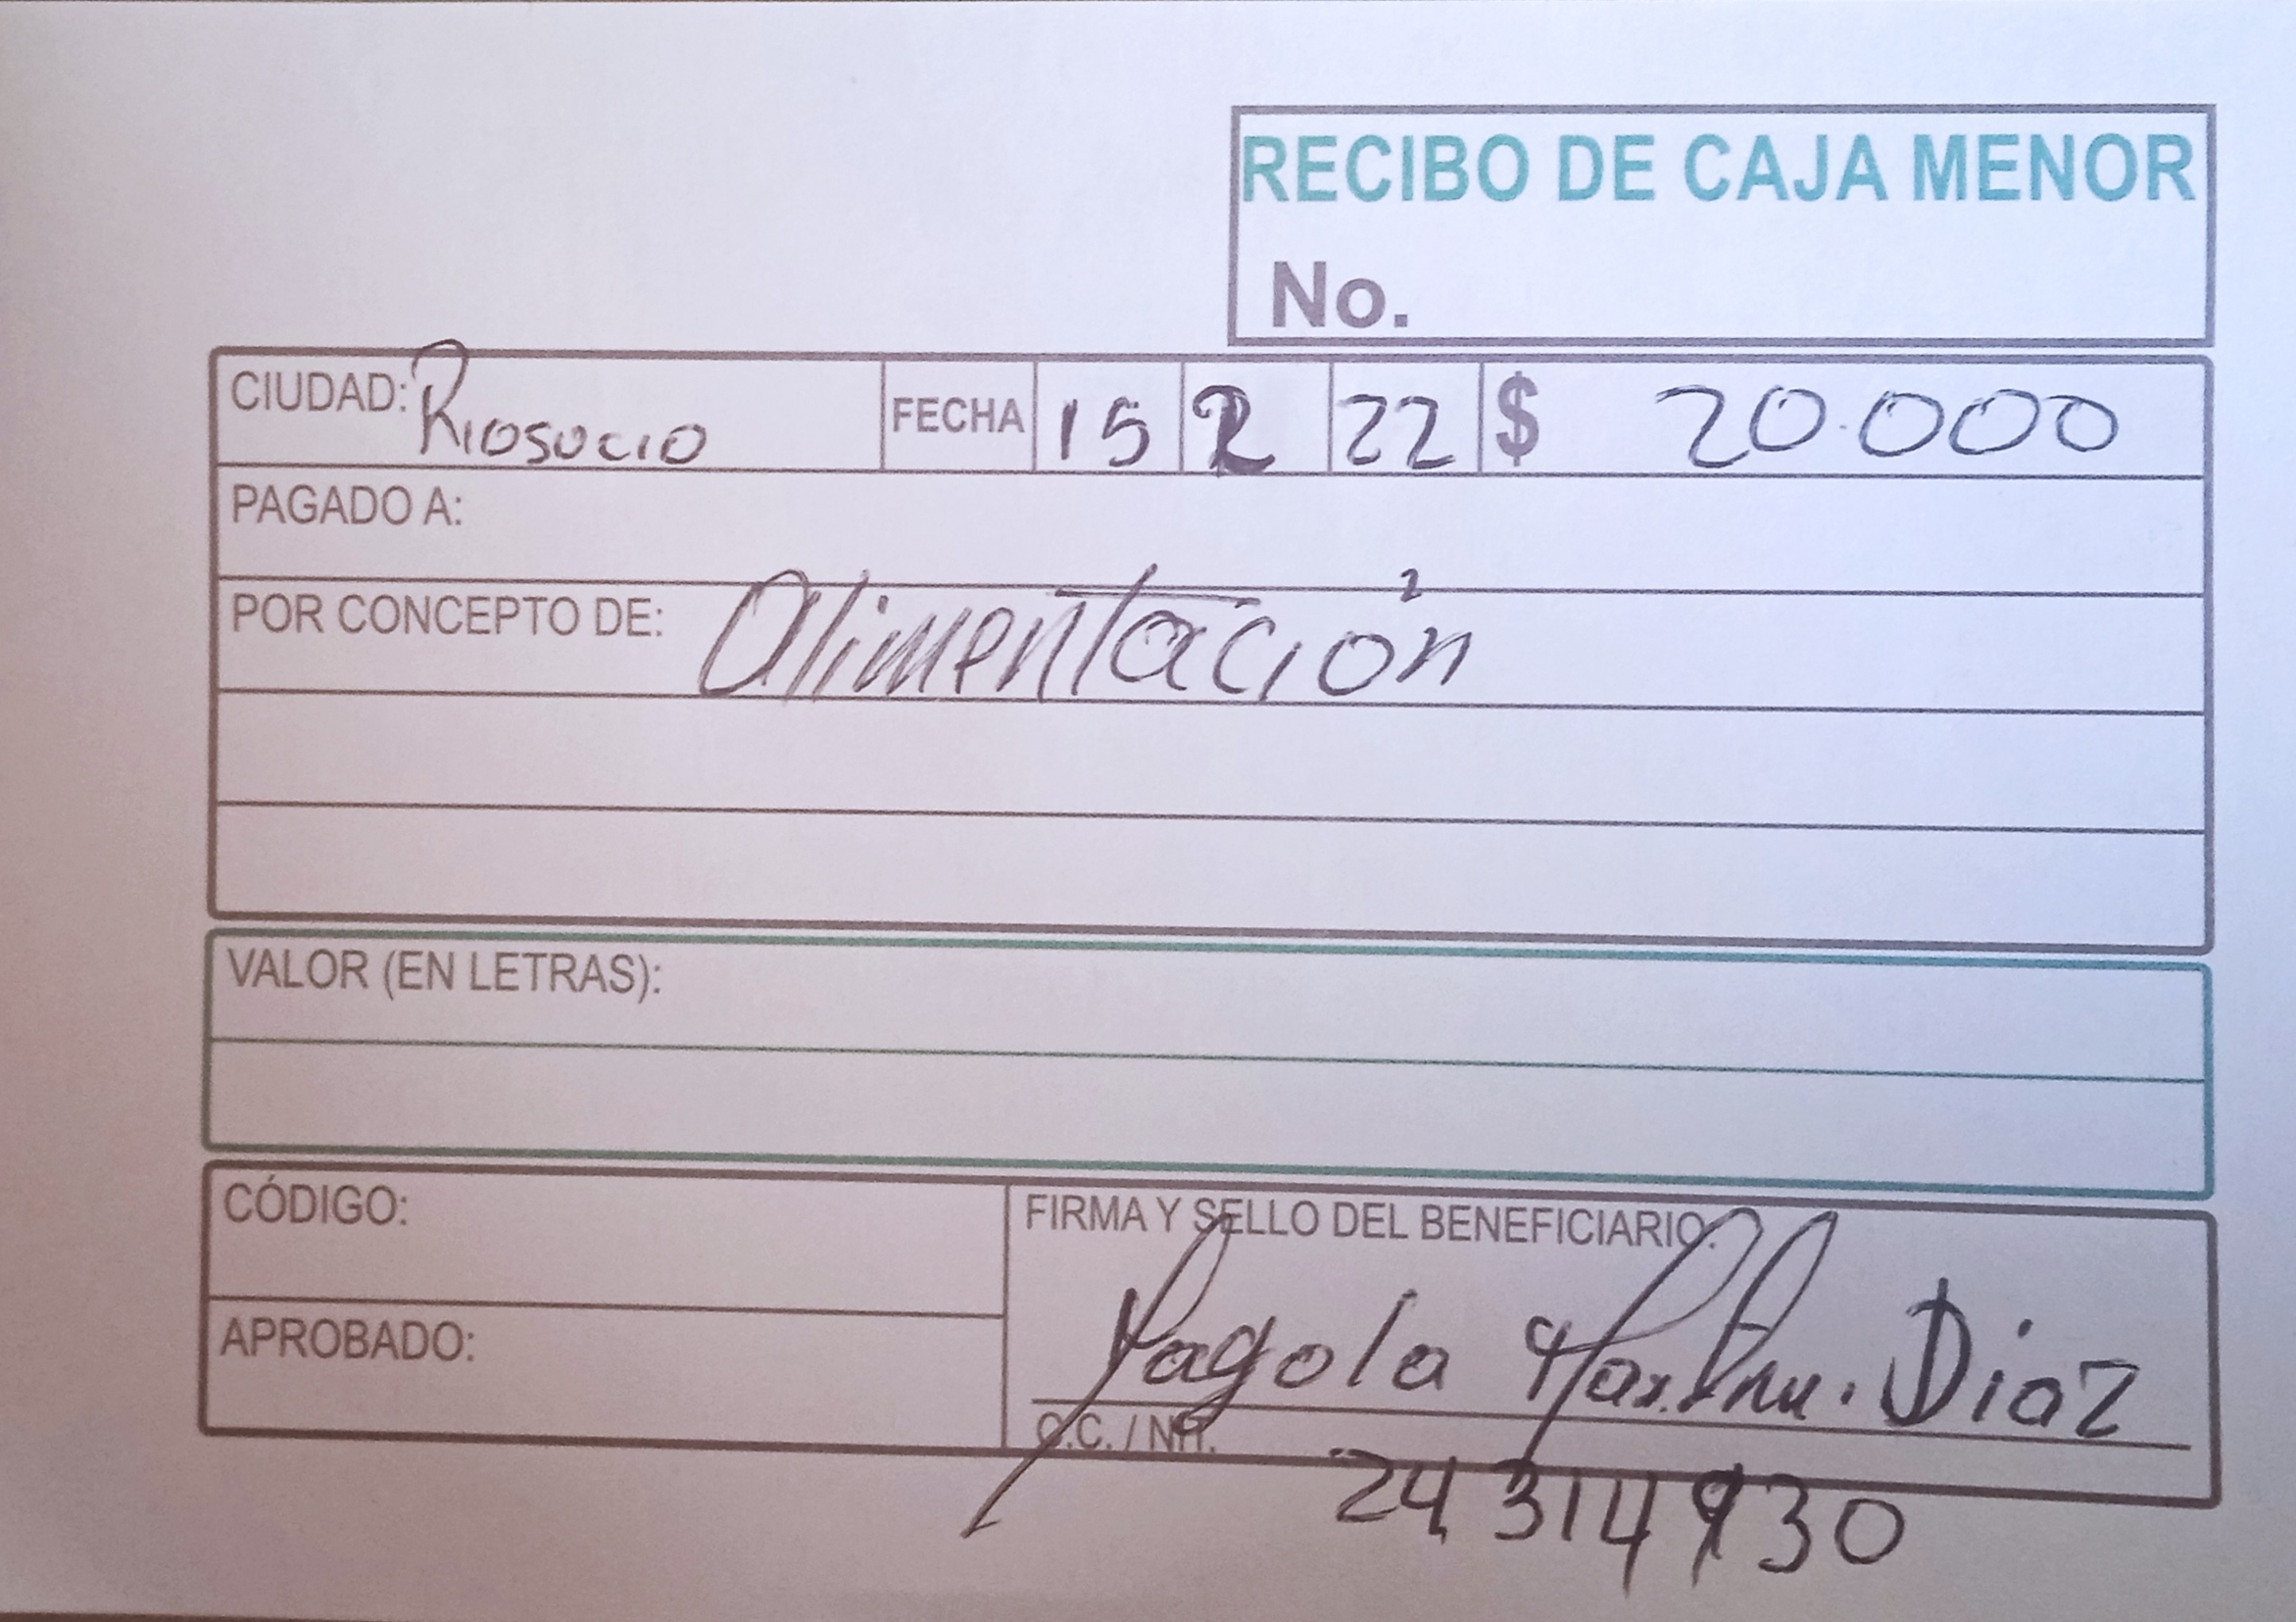 RECIBO DE CAJA MENOR
No.
CIUDAD: Riosucio FECHA 15 2 22 $ 20.000
PAGADO A:
POR CONCEPTO DE: Alimentación
VALOR (EN LETRAS):
CÓDIGO:
FIRMA Y SELLO DEL BENEFICIARIO.
APROBADO:
Diaz
C.C. / NIT.
24314930